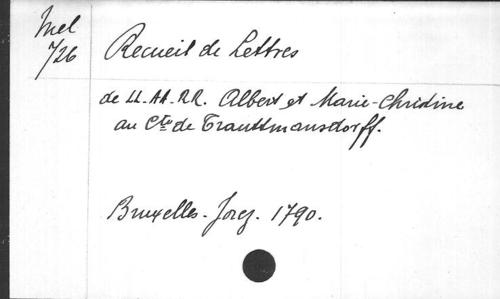 Mel
726
Recueil de Lettres
de LL. AA. RR. Albert et Marie-Christine
au Cte de Trauttmansdorff.
Bruxelles. Jorez. 1790.